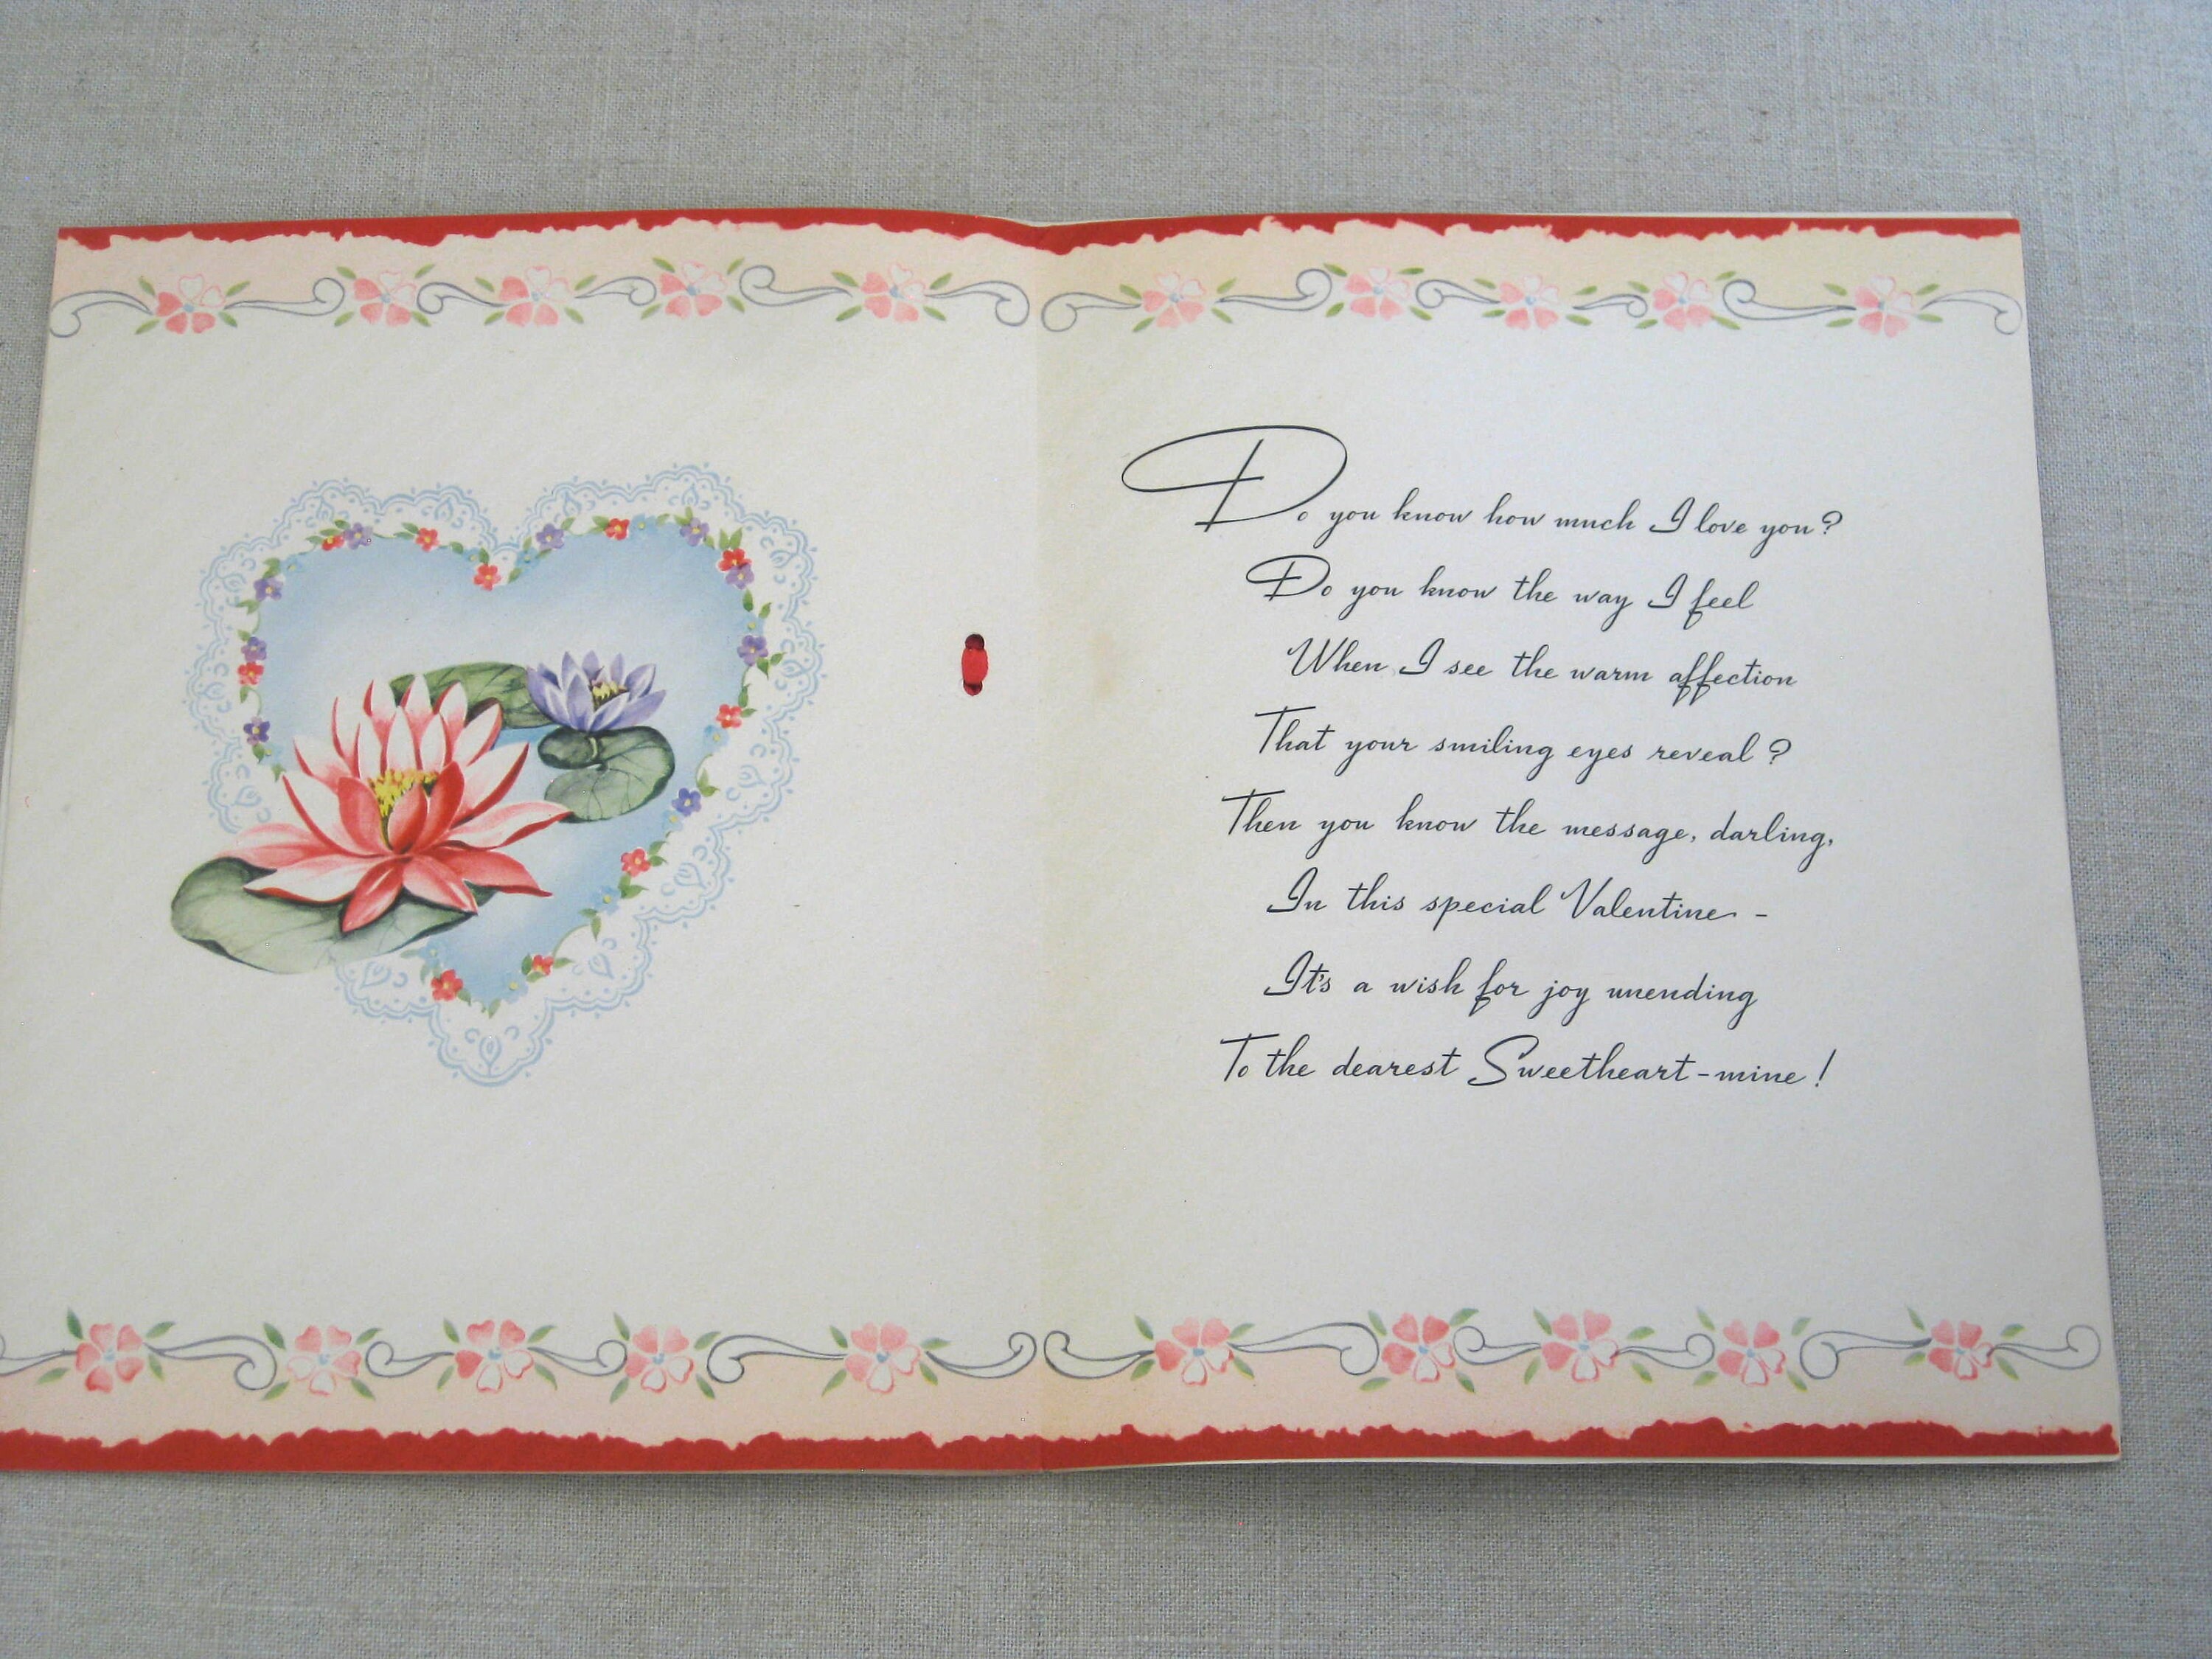 Do you know how much I love you?
Do you know the way I feel
When I see the warm affection
That your smiling eyes reveal?
Then you know the message, darling,
In this special Valentine -
It's a wish for joy unending
To the dearest Sweetheart-mine!